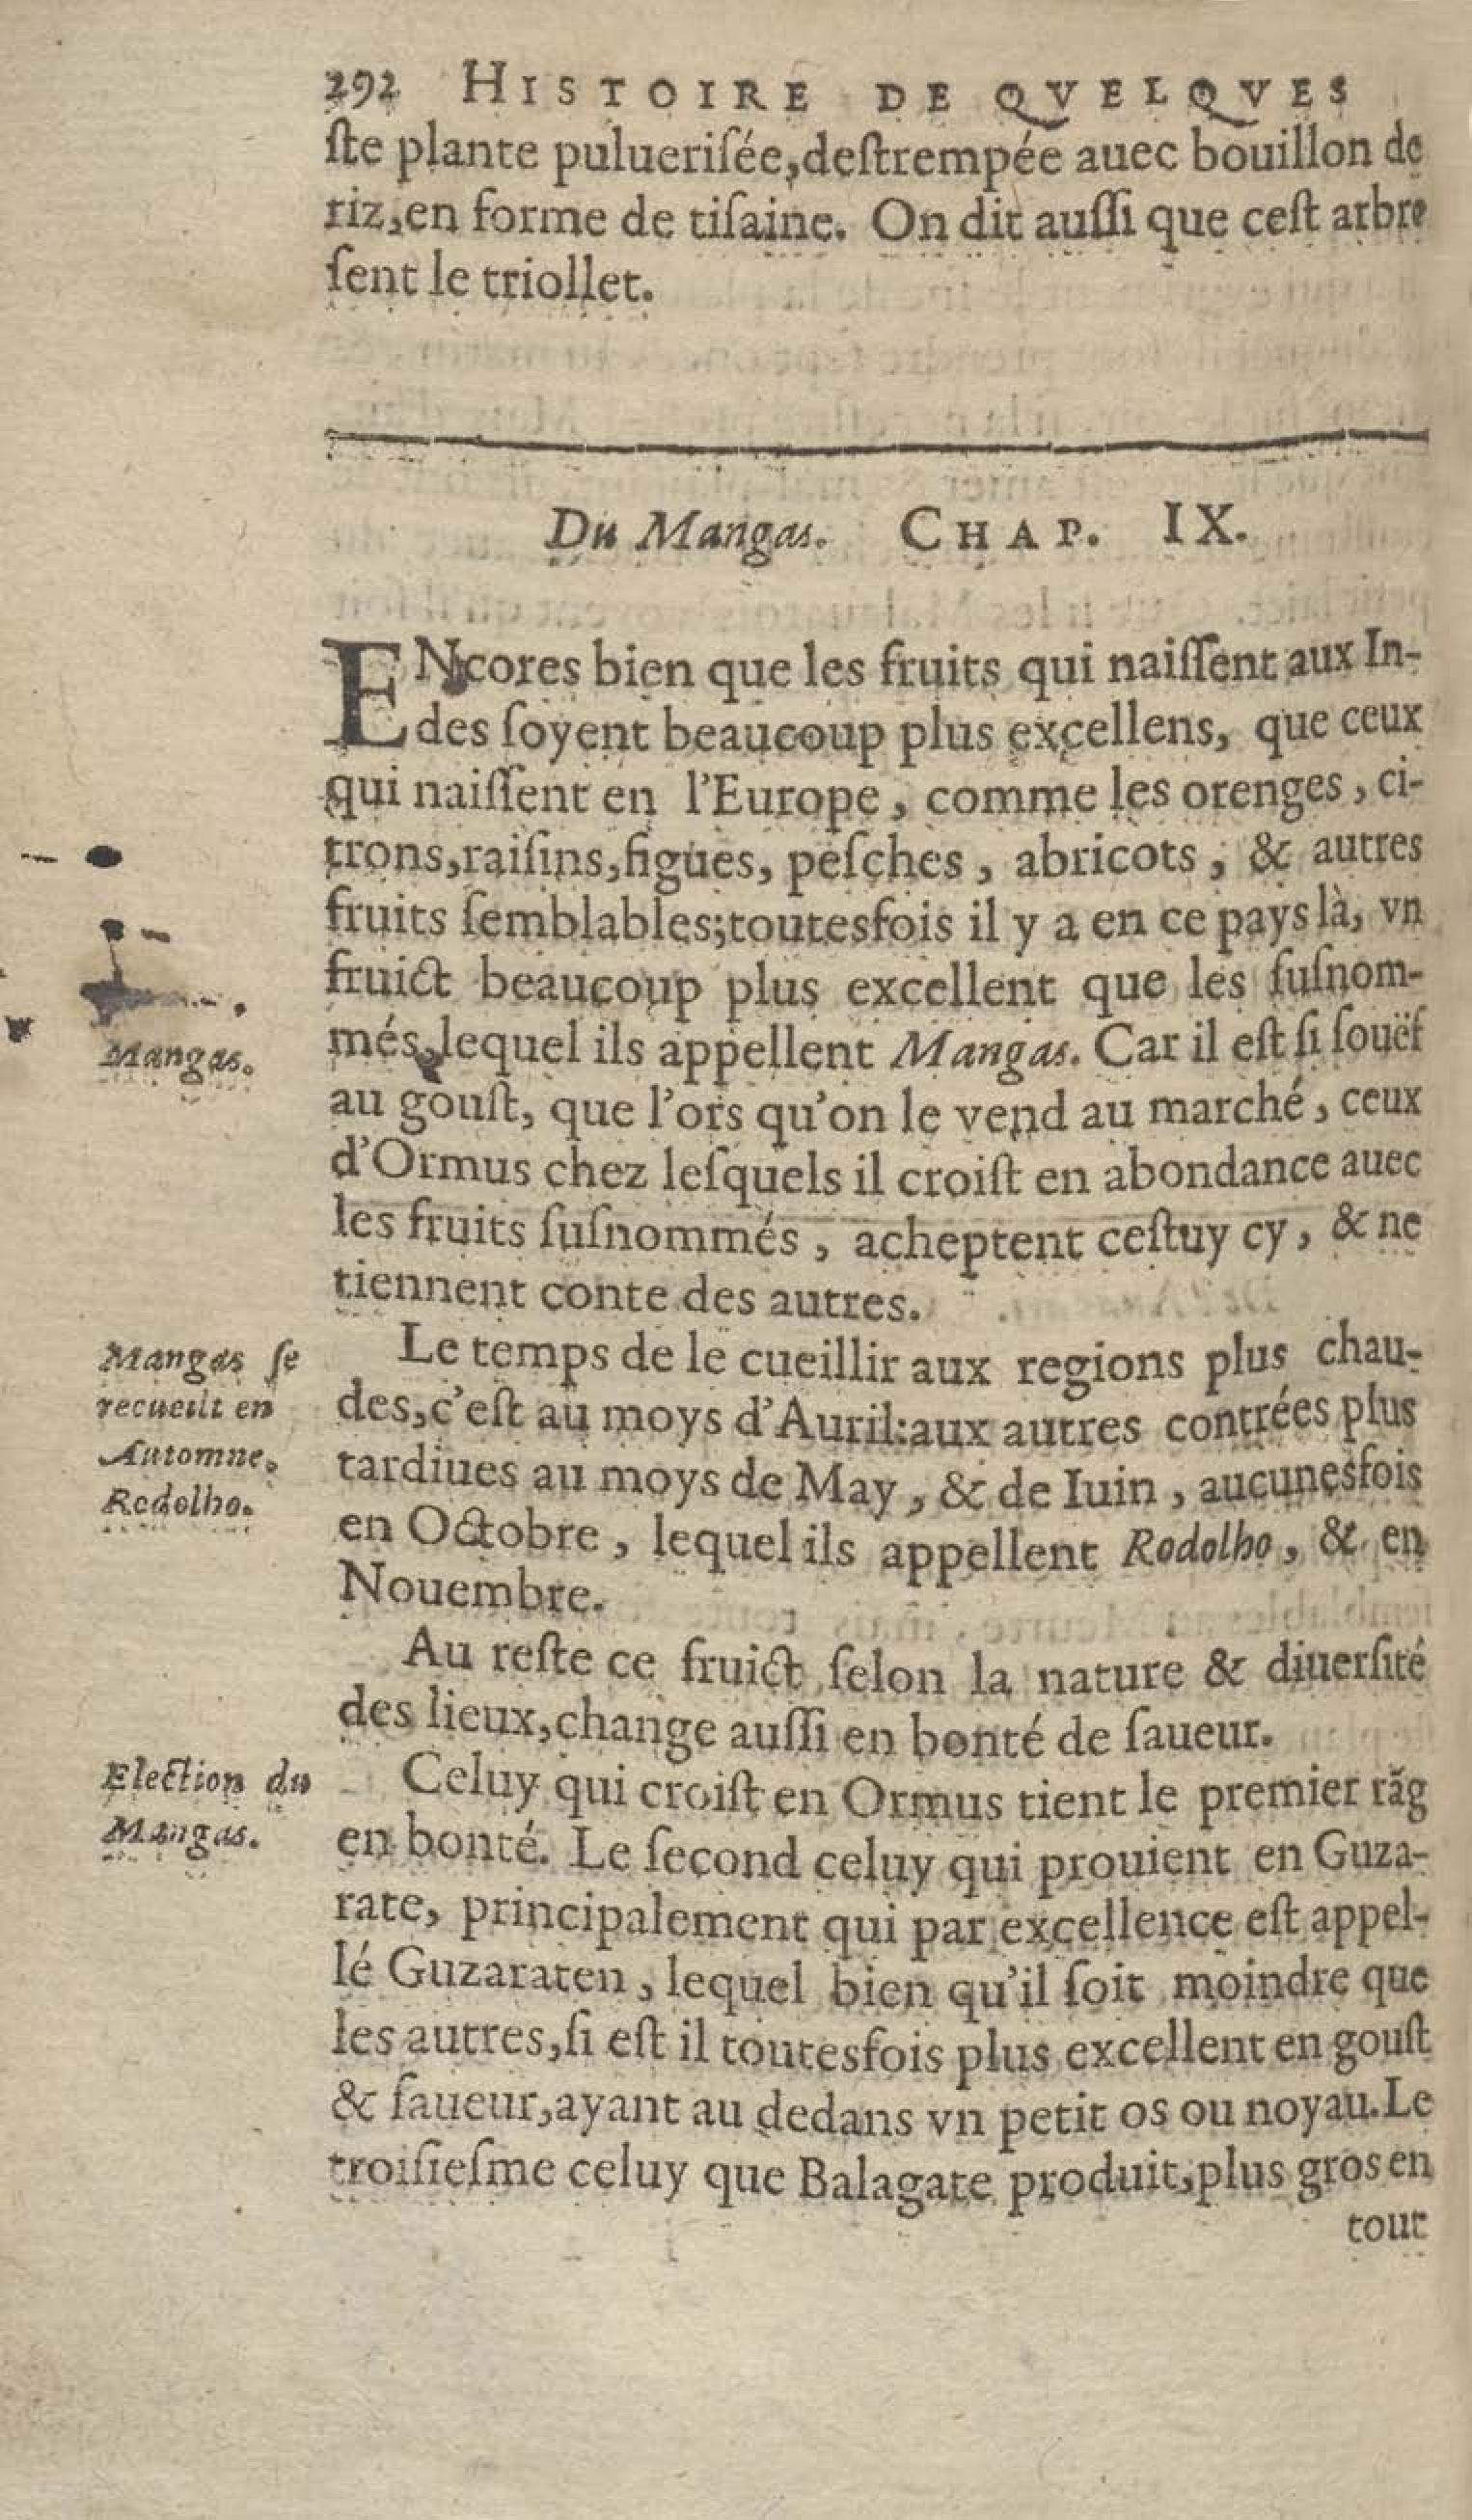 292 HISTOIRE DE QVELQVES
ſte plante pulueriſée,deſtrempée auec bouillon de
riz,en forme de tiſaine. On dit auſſi que ceſt arbre
ſent le triollet.
Du Mangas. CHAP. IX.
ENcores bien que les fruits qui naiſſent aux In-
des ſoyent beaucoup plus excellens, que ceux
qui naiſſent en l'Europe, comme les orenges, ci-
trons,raiſins,figues, peſches, abricots, & autres
fruits ſemblables;toutesfois il y a en ce pays là, vn
fruict beaucoup plus excellent que les ſuſnom-
Mangas.
més,lequel ils appellent Mangas. Car il eſt ſi ſouëf
au gouſt, que l'ors qu'on le vend au marché, ceux
d'Ormus chez leſquels il croiſt en abondance auec
les fruits ſuſnommés, acheptent ceſtuy cy, & ne
tiennent conte des autres.
Mangas ſe
recueilt en
Automne.
Rodolho.
Le temps de le cueillir aux regions plus chau-
des,c'eſt au moys d'Auril:aux autres contrées plus
tardiues au moys de May, & de Iuin, aucunesfois
en Octobre, lequel ils appellent Rodolho, & en
Nouembre.
Au reſte ce fruict ſelon la nature & diuerſité
des lieux,change auſſi en bonté de ſaueur.
Election du
Mangas.
Celuy qui croiſt en Ormus tient le premier rãg
en bonté. Le ſecond celuy qui prouient en Guza-
rate, principalement qui par excellence eſt appel-
lé Guzaraten, lequel bien qu'il ſoit moindre que
les autres,ſi eſt il toutesfois plus excellent en gouſt
& ſaueur,ayant au dedans vn petit os ou noyau.Le
troiſieſme celuy que Balagate produit,plus gros en
tout